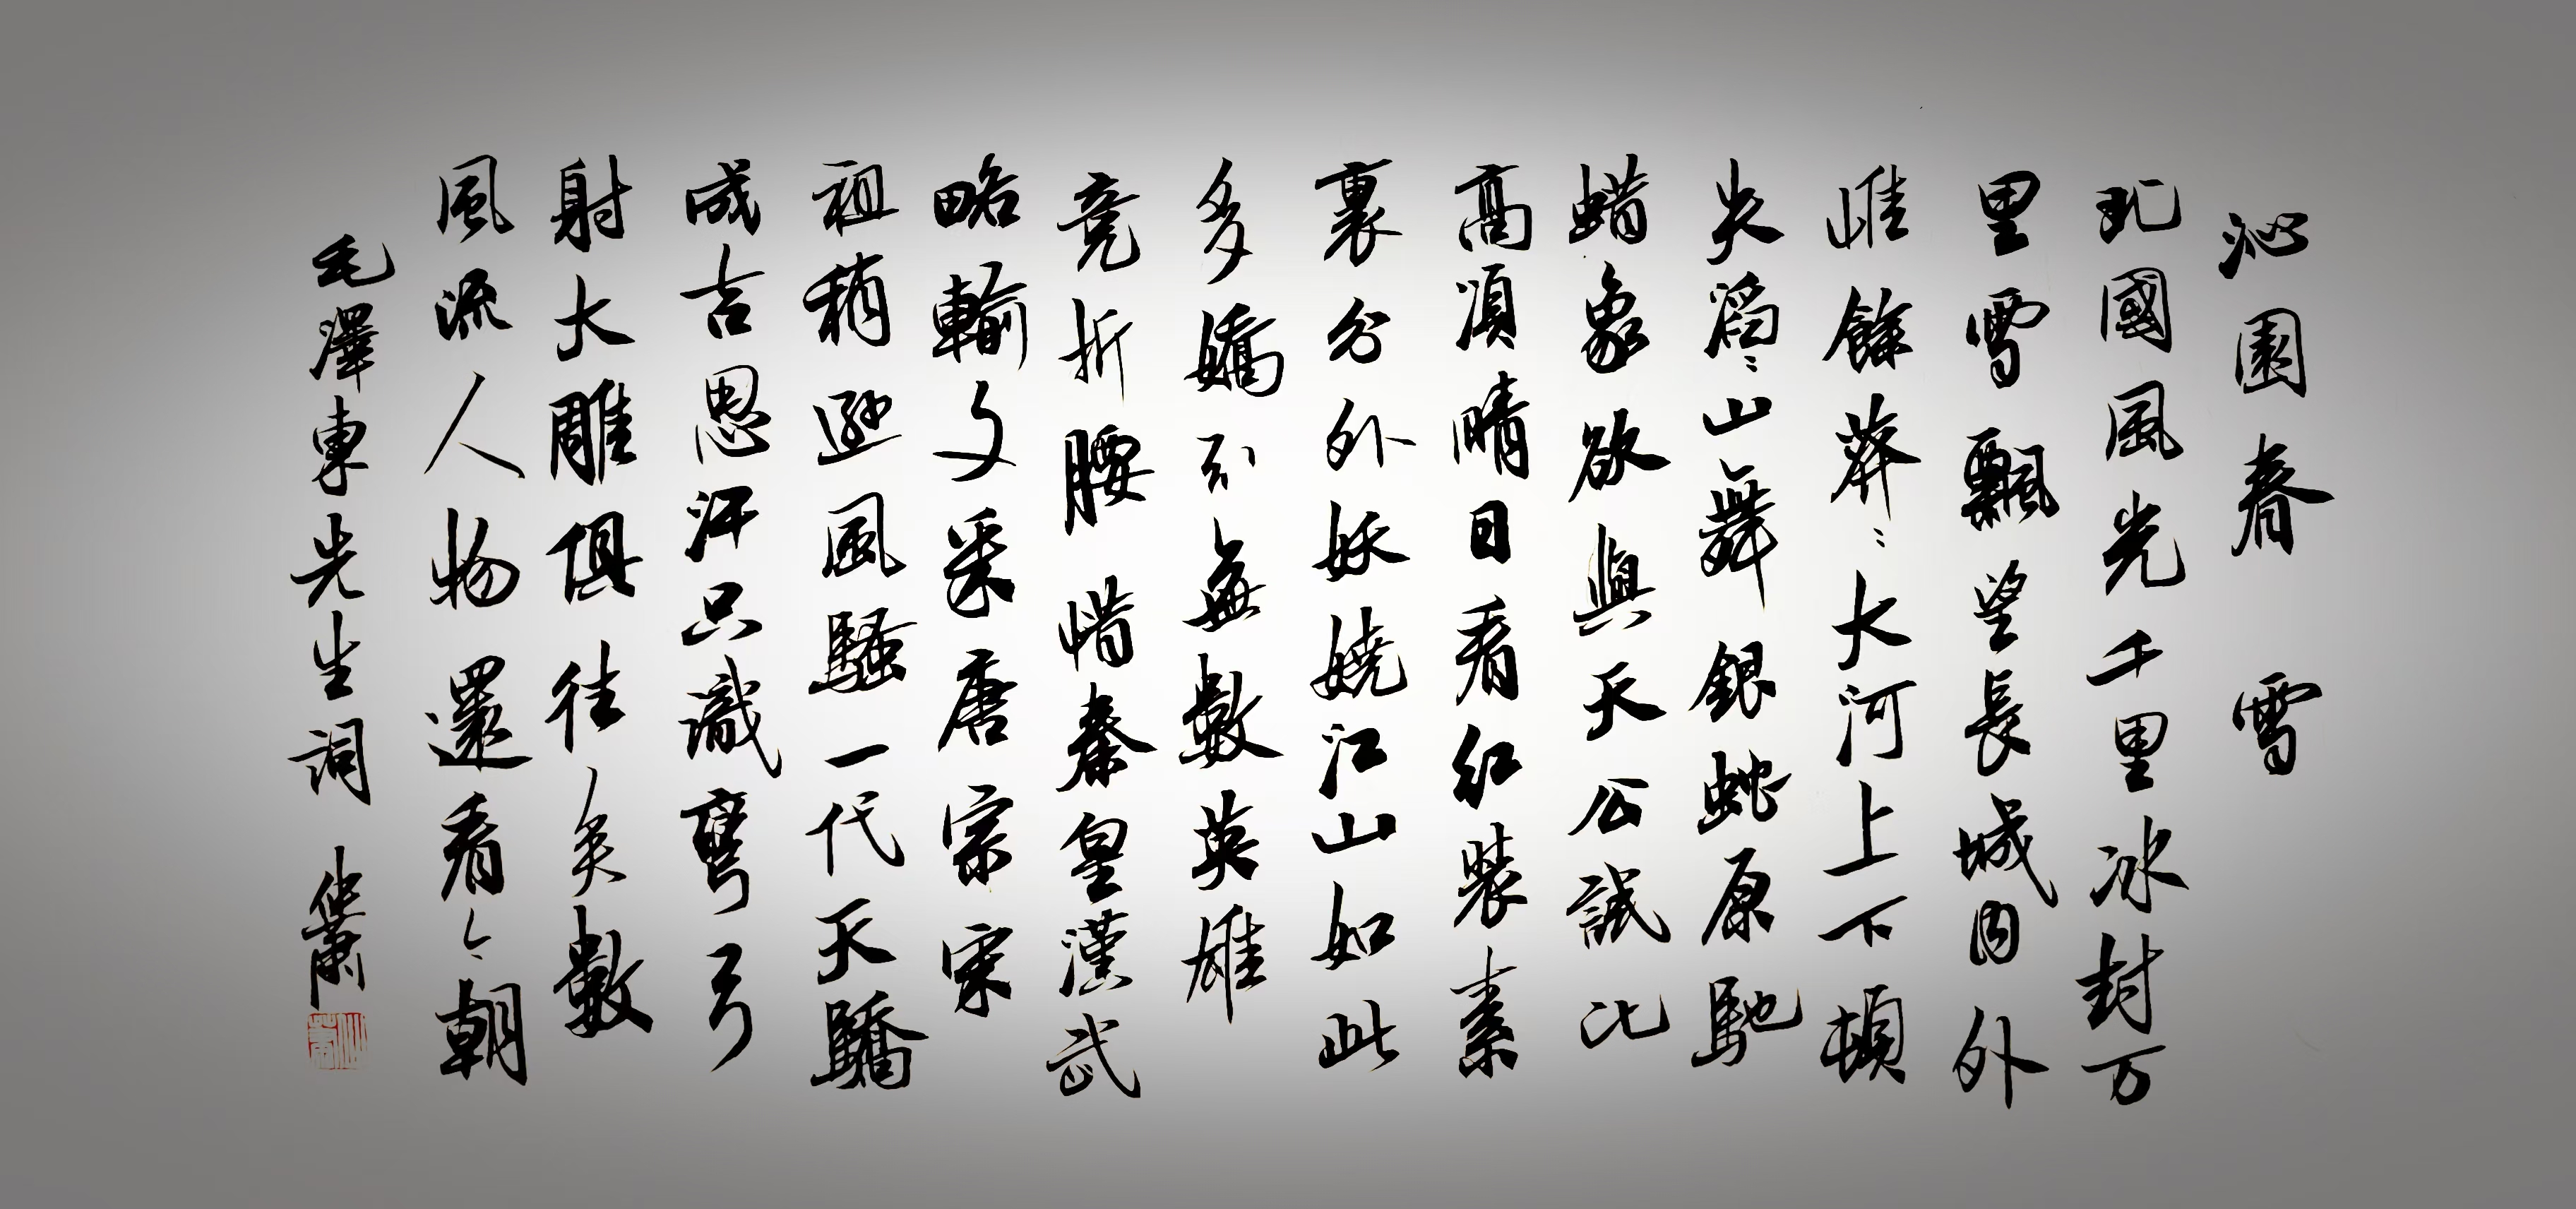 沁園春 雪
北國風光千里冰封万
里雪飄望長城內外
惟餘莽〻大河上下頓
失滔〻山舞銀蛇原馳
蜡象欲與天公試比
高須晴日看紅裝素
裹分外妖嬈江山如此
多嬌引無數英雄
競折腰惜秦皇漢武
略輸文采唐宗宋
祖稍遜風騷一代天驕
成吉思汗只識彎弓
射大雕俱往矣數
風流人物還看今朝
毛澤東先生詞